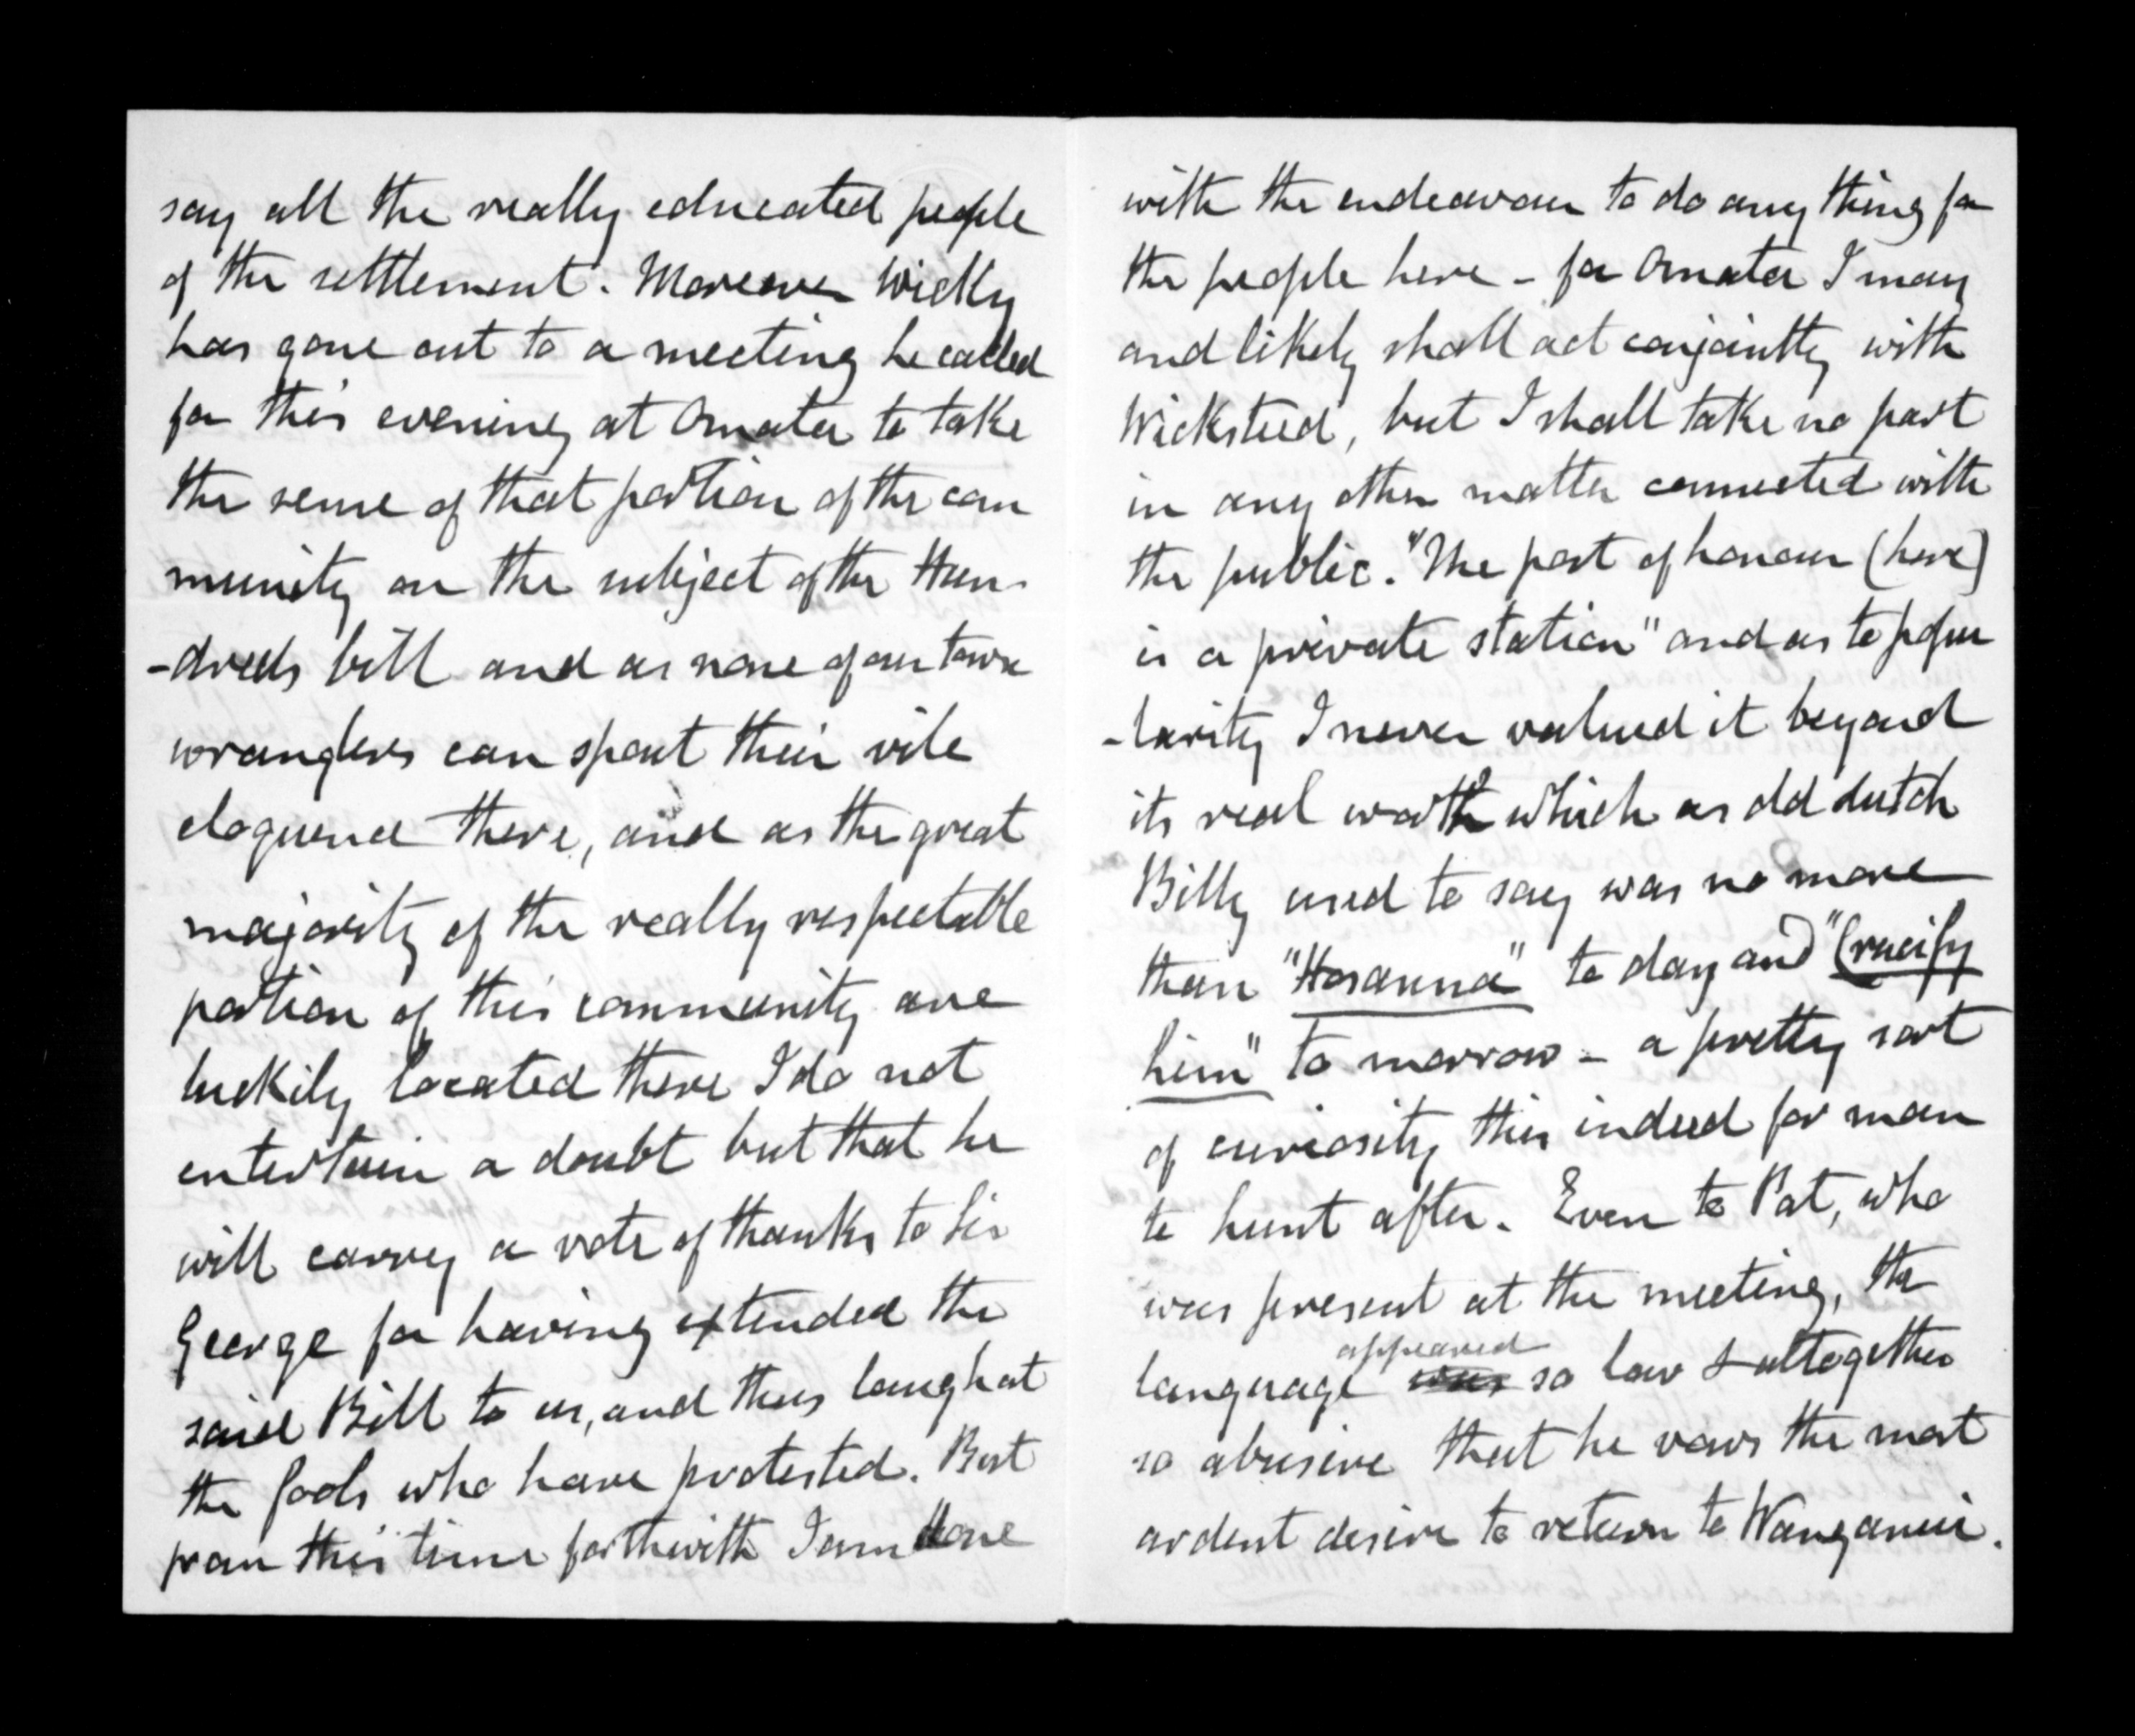 say all the really educated people
of the settlement. Moreover Wicky
has gone out to a meeting he called
for this evening at Omata to take
the sense of that portion of the com
munity on the subject of the Hun-
-dreds bill and as none of our town
wranglers can spout their vile
eloquence there, and as the great
majority of the really respectable
portion of this community are
luckily located there I do not
entertain a doubt but that he
will carry a vote of thanks to Sir
George for having extended the
said Bill to us, and thus laugh at
the fools who have protested. But
from this time forthwith I am done
with the endeavour to do any thing for
the people here - for Omata I may
and likely shall act conjointly with
Wicksteed, but I shall take no part
in any other matter connected with
the public. "The post of honour (here)
is a private station" and as to popu
-larity I never valued it beyond
its real worth which as old dutch
Billy used to say was no more
than "Hosanna" to day and "Crucify
him" to morrow - a pretty sort
of curiosity this indeed for man
to hunt after. Even to Pat, who
was present at the meeting, the
appeared
language was so low & altogether
so abusive that he vows the most
ardent desire to return to Wanganui.